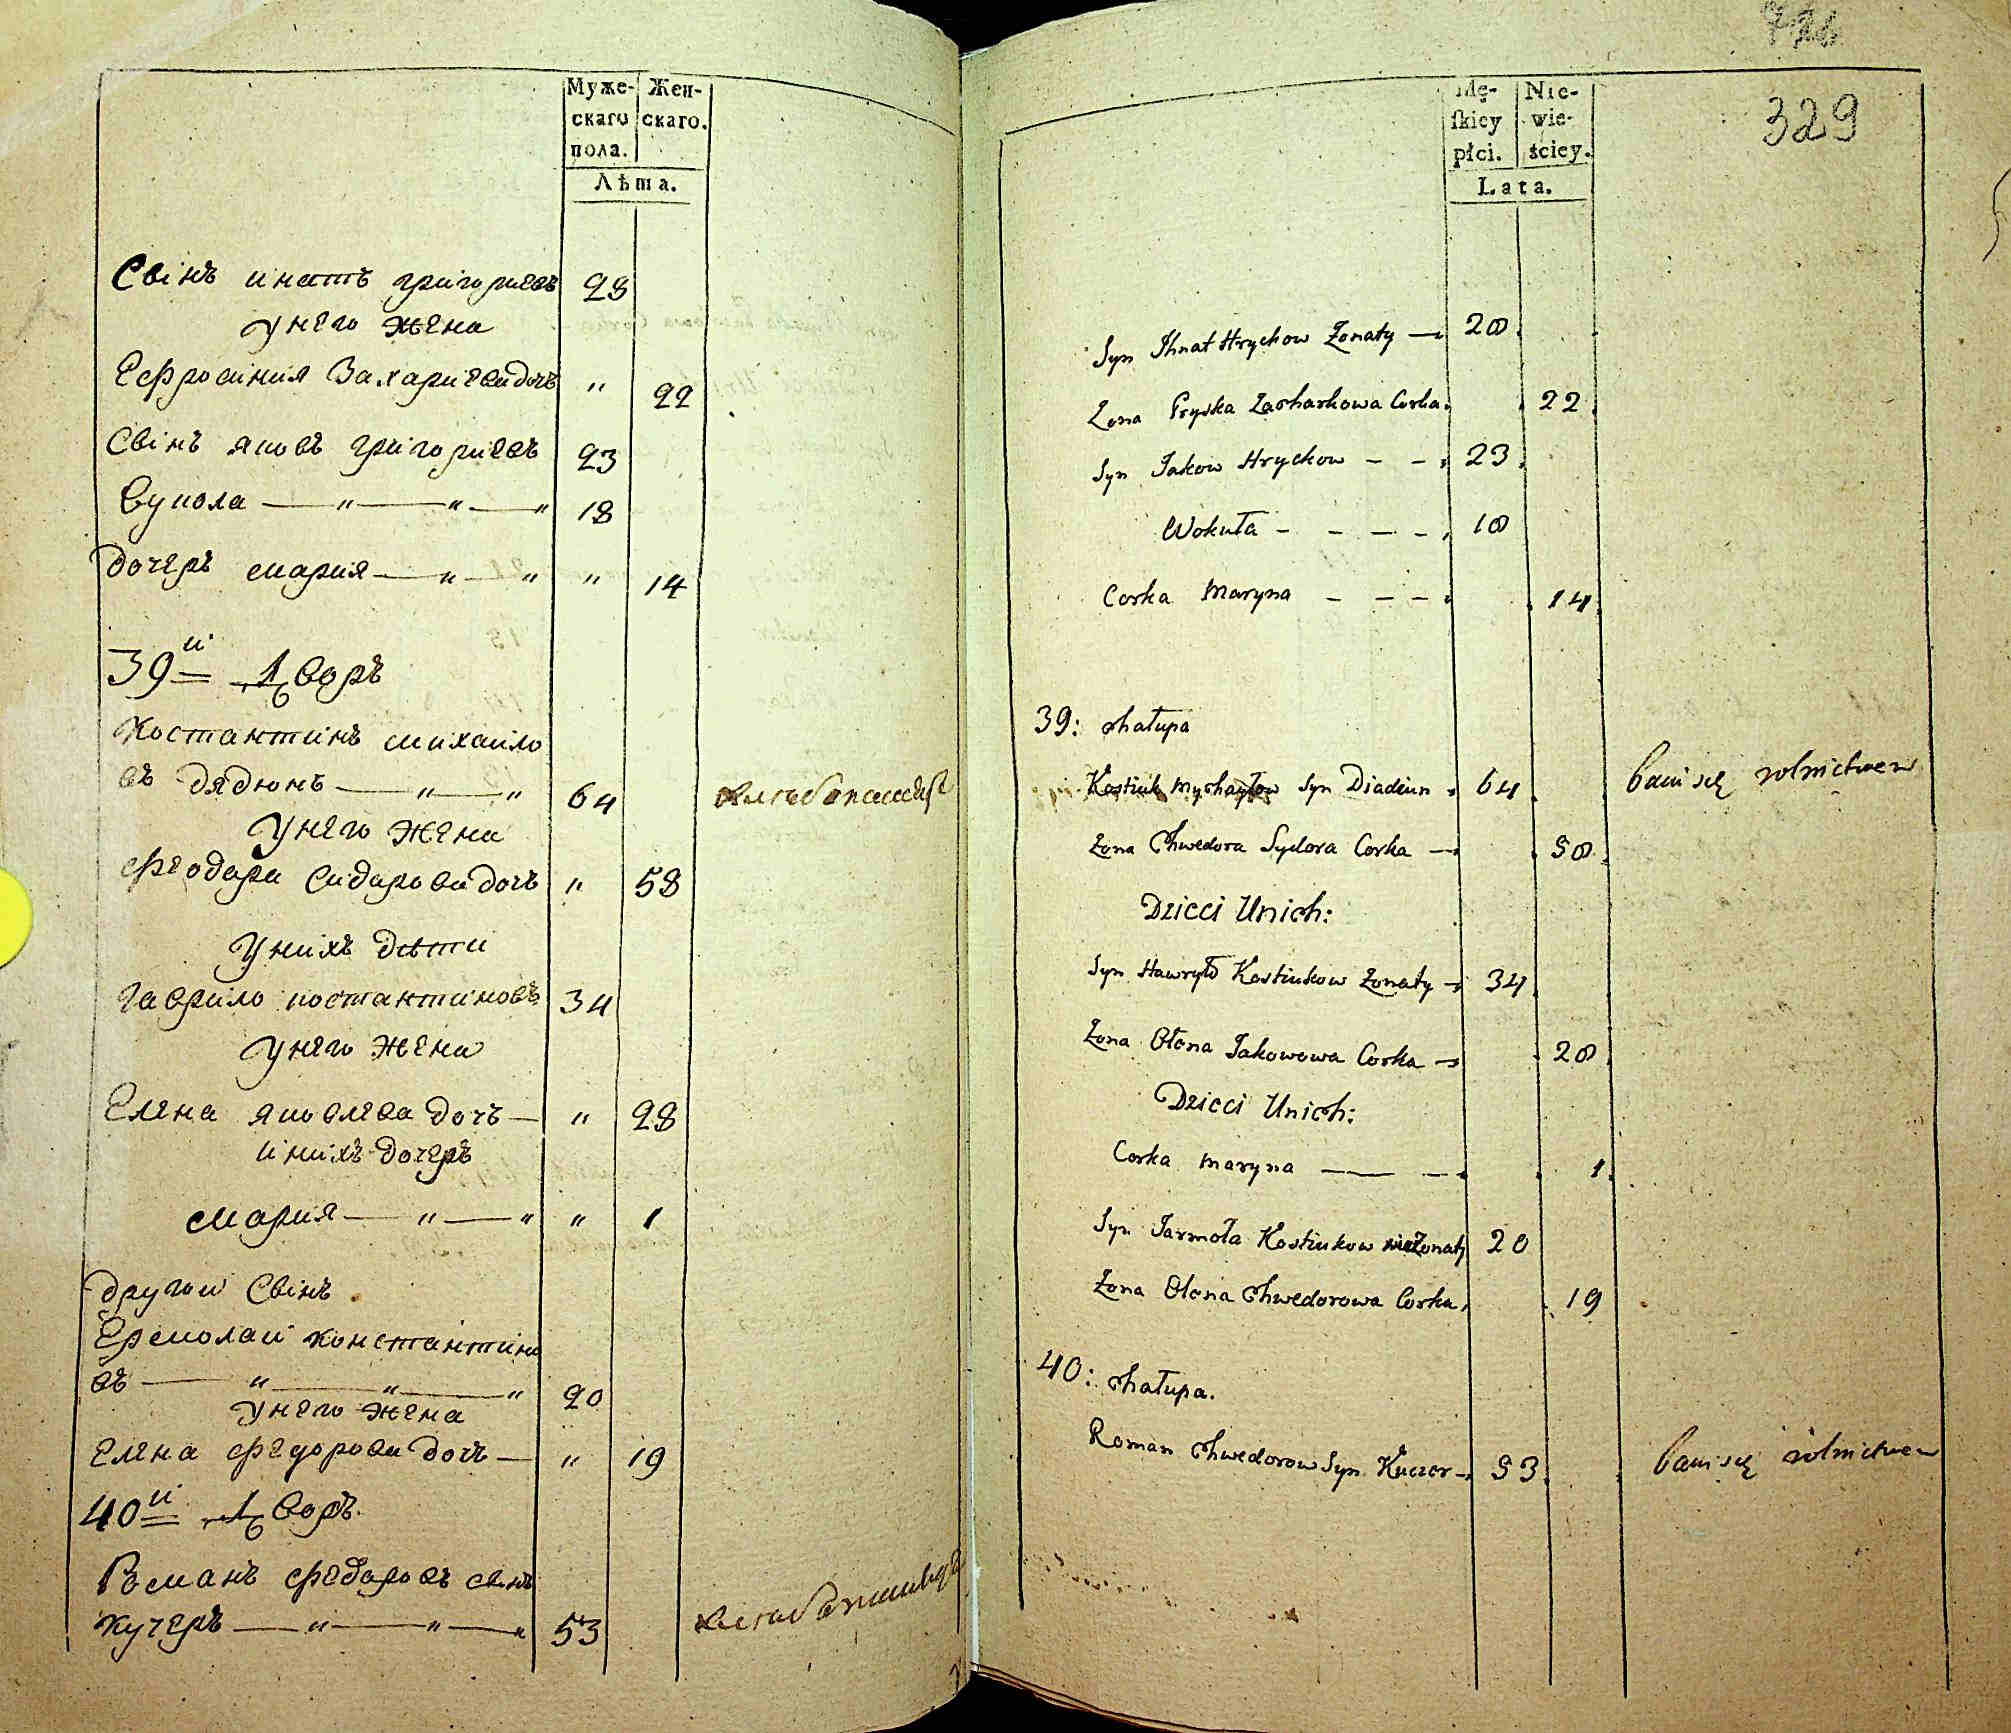 Муже- Жен-
скаго скаго.
пола.
Лѣта.
Свінъ игнатъ григориевъ 28
унего жена
Ефросиния Захариева дочъ " 22
Свінъ яковъ григориевъ 23
Вукола — " — " — " 18
дочеръ мария — " — " " 14
39й Дворъ
Костантинъ михайло
въ дядюнъ — " — " 64 хлебопашецъ
унего жена
феодора Сидорова дочъ " 58
Унихъ дѣти
гаврило костантиновъ 34
унего жена
Елена яковлева дочъ — " 28
инихъ дочеръ
мария — " — " " 1
другой Свінъ
Ермолай константино
въ — " — " — " 20
унего жена
елена федорова дочъ — " 19
40й Дворъ
Романъ федоровъ свнъ
кучеръ — " — " — " 53
329
Mę- Nie-
ſkiey wie-
płci. ściey.
Lata.
Syn Ihnat Hryckow Żonaty — 28
Żona Pryska Zacharkowa Corka 22
Syn Jakow Hryckow - - 23
Wokuła - - - - 18
Corka Maryna - - - 14
39: chałupa
Kostiuk Mychayłow Syn Diadiun 64 bawi się rolnictwem
Żona Chwedora Sydora Corka — 58
Dzieci Unich:
Syn Hawryło Kostiukow Żonaty 34
Żona Ołena Jakowowa Corka 28
Dzieci Unich:
Corka Maryna — - 1
Syn Jarmoła Kostiukow Żonaty 20
Żona Olena Chwedorowa Corka 19
40: chałupa.
Roman Chwedorow Syn Kuczer 53 bawi się rolnictwem